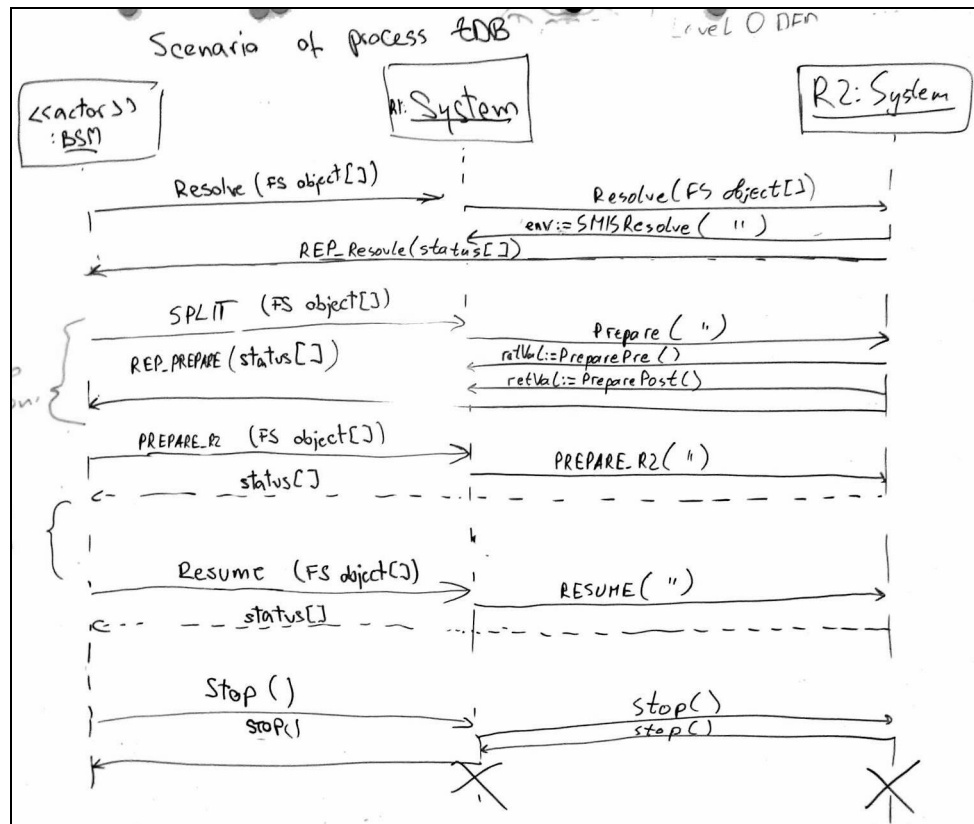 Scenario of process tDB
Level 0 DFD
<<actor>>
: BSM
R1: System
R2: System
Resolve (FS object[])
Resolve (FS object[])
env:= SMISResolve ( " )
REP_Resovle(status[])
SPLIT (FS object[])
Prepare ( " )
REP_PREPARE (status[])
retVal:= PreparePre ()
retVal:= PreparePost()
PREPARE_R2 (FS object[])
PREPARE_R2( " )
status[]
Resume (FS object[])
RESUME( " )
status[]
Stop ()
stop()
STOP()
stop()